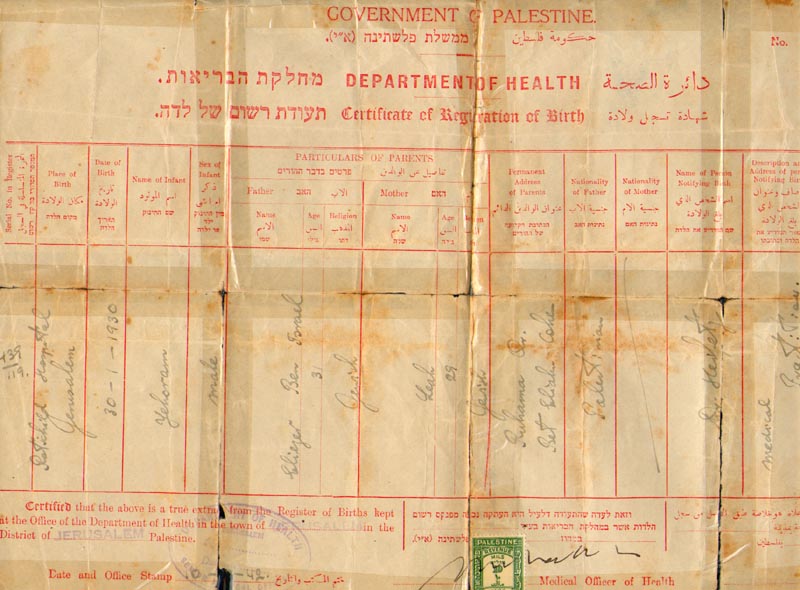 GOVERNMENT OF PALESTINE.
ממשלת פלשתינה (א״י). حكومة فلسطين
No.
מחלקת הבריאות. DEPARTMENT OF HEALTH دائرة الصحة
תעודת רשום של לדה. Certificate of Registration of Birth شهادة تسجيل ولادة
PARTICULARS OF PARENTS
פרטים בדבר ההורים تفاصيل عن الوالدين
Serial No. in Register
Place of Birth
مكان الولادة
מקום הלדה
Date of Birth
تاريخ الولادة
תאריך הלדה
Name of Infant
اسم المولود
שם התינוק
Sex of Infant
ذكر ام انثى
Father האב الاب
Mother האם
Name
الاسم
שמו
Age
السن
גילו
Religion
المذهب
דתו
Name
الاسم
שמה
Age
السن
גילה
Permanent Address of Parents
عنوان الوالدين الدائم
של ההורים
Nationality of Father
جنسية الاب
נתינות האב
Nationality of Mother
جنسية الام
נתינות האם
Name of Person Notifying Birth
اسم الشخص الذي بلغ الولادة
שם המודיע את הלדה
Description and Address of person Notifying Birth
439
Rotschild Hospital
Jerusalem
30-1-1930
Yehoram
male
Eliezer Ben Israel
31
Jewish
Leah
29
Ruhama Qr.
Palestinian
medical
Certified that the above is a true extract from the Register of Births kept
at the Office of the Department of Health in the town of JERUSALEM in the
District of JERUSALEM Palestine.
וזאת לעדה שהתעודה דלעיל היא העתקה נכונה מפנקס רשום
הלדות אשר במחלקת הבריאות בעיר
במחוז פלשתינה (א״י).
Date and Office Stamp ختم المكتب والتاريخ
PALESTINE
REVENUE
Medical Officer of Health